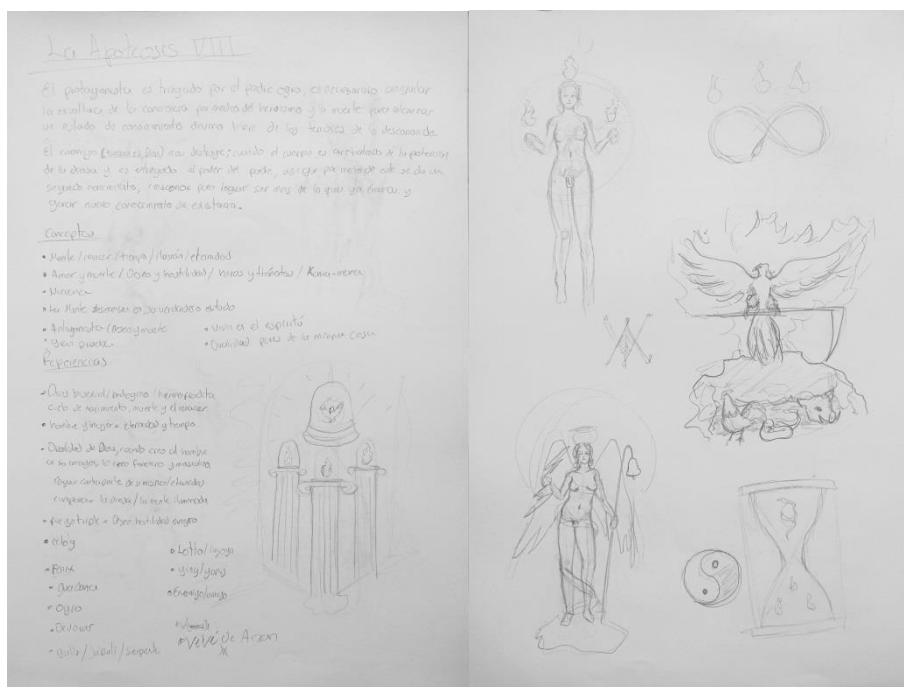 La Apoteosis VIII
El protagonista es tragado por el padre ogro, es necesario aniquilar
la envoltura de la conciencia por medio del heroísmo y la muerte para alcanzar
un estado de conocimiento divino libre de los temores de lo
El enemigo nos distrae; cuando el cuerpo es arrebatado de la protección
de la diosa y es entregado al poder del padre, así que por medio de este se da un
segundo nacimiento, renacer para lograr ser mas de lo que ya eramos y
ganar nuevo conocimiento de existencia.
Conceptos
• Muerte / renacer / tiempo / Ilusión / eternidad
• Amor y muerte / Deseo y hostilidad / 
• Nirvana
• La Mente en su verdadero estado
• Antagonista / Deseo y muerte
Gran prueba
• Vivir es el espíritu
• Dualidad partes de la misma cosa
Referencias
• Dios bisexual / andrógino / hermafrodita
Ciclo de nacimiento, muerte y el renacer
• hombre y mujer = eternidad y tiempo
• Dualidad de Dios, cuando creo al hombre
a su imagen, lo creo femenino y masculino
la diosa / la mente iluminada
• fuego triple = Deseo hostilidad
• reloj
• Fenix
• Guadaña
• Ogro
• Devorar
• gallo / jabalí / serpiente
• Lotto / 
• ying / yang
• Enemigo/amigo
• Vevé de